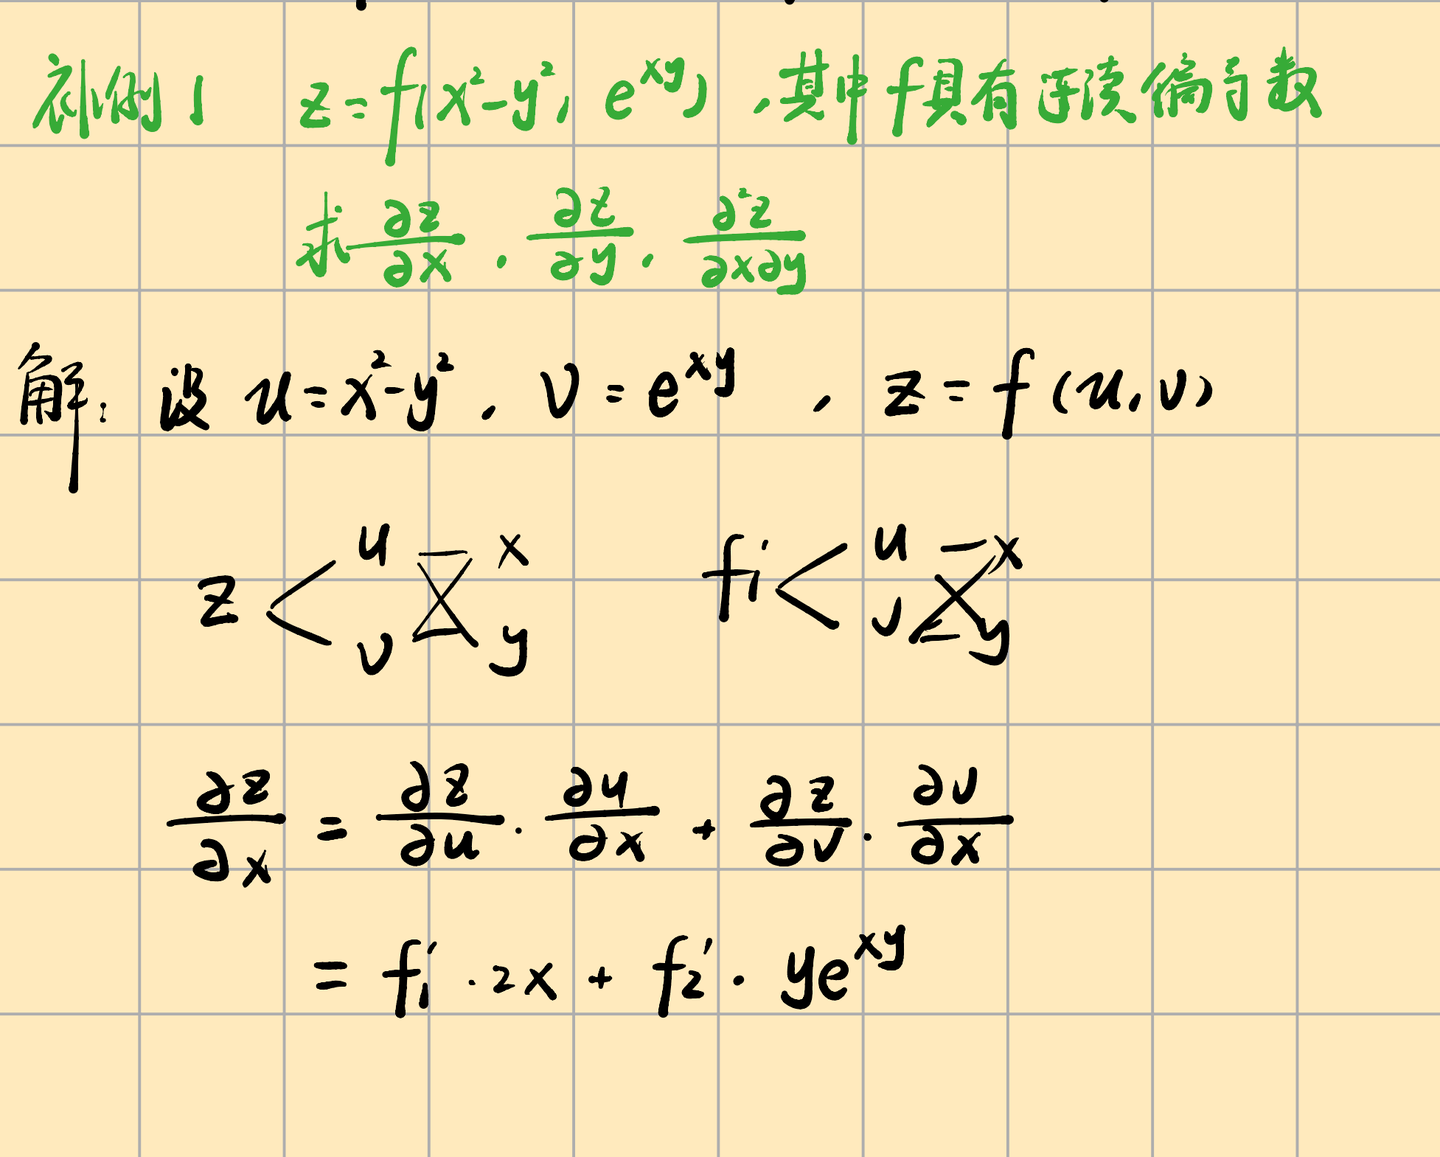 补例1 z=f(x²-y², e^{xy}),其中f具有连续偏导数
求 ∂z/∂x . ∂z/∂y . ∂²z/∂x∂y
解: 设 u=x²-y² , v=e^{xy} , z=f(u,v)
z < u x f₁' < u x
v y v y
∂z/∂x = ∂z/∂u · ∂u/∂x + ∂z/∂v · ∂v/∂x
= f₁' · 2x + f₂' · ye^{xy}